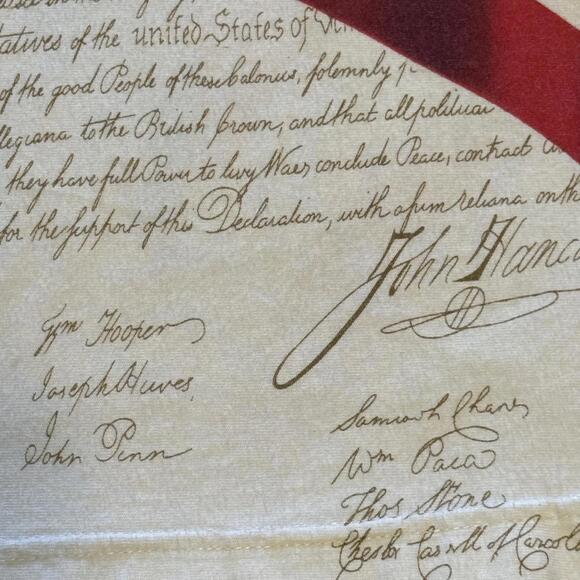 atives of the united States of
of the good People of these Calonus, folemnly p
llegiana to the British Crown, and that all polituar
they have full Power to livy Waes conclude Peace, contract
for the support of this Declaration, with a fum reliana on th
John Hanco
Wm Hooper
Joseph Huves,
John Penn
Samuosh Chares
Wm Paca
Thos Stone
Chesler Carroll of Carcoll